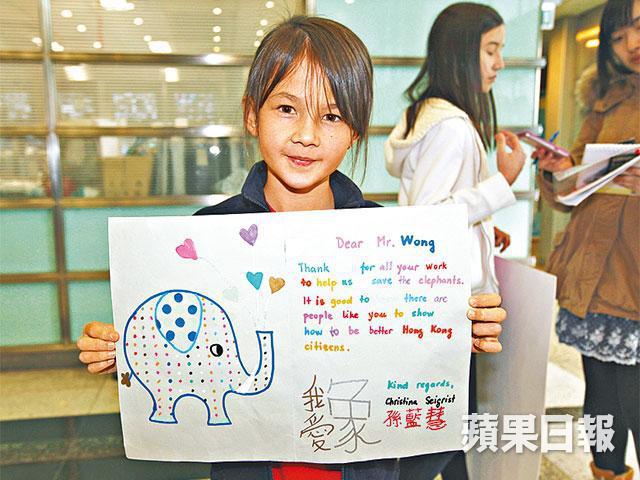 Dear Mr. Wong
Thank for all your work
to help us save the elephants.
It is good to there are
people like you to show
how to be better Hong Kong
citizens.
Kind regards,
Christina Seigrist
孫藍慧
我愛象
蘋果日報